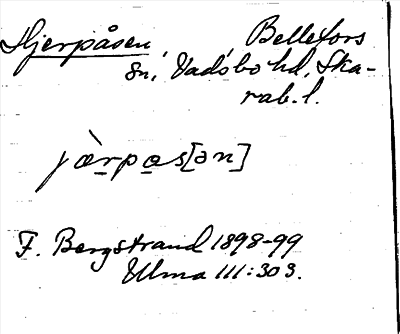 Hjerpåsen, Bellefors
sn, Vadsbo hd, Ska-
rab. l.
jæ̀rpas[ən]
F. Bergstrand 1898-99
Ulma 111:303.